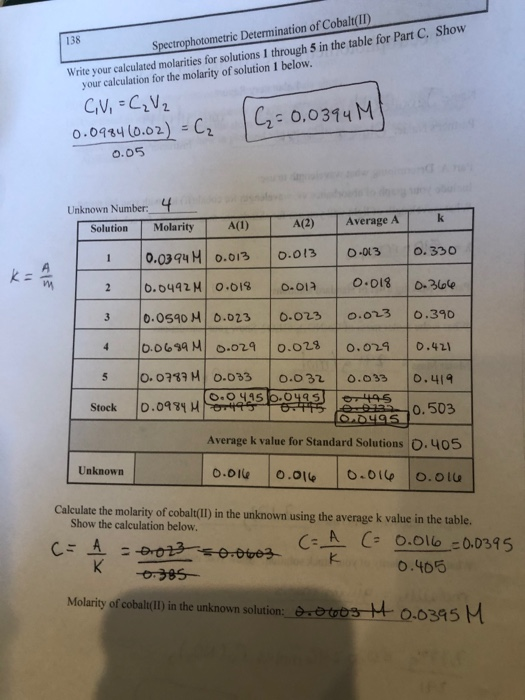 138
Spectrophotometric Determination of Cobalt(II)
Write your calculated molarities for solutions 1 through 5 in the table for Part C. Show
your calculation for the molarity of solution 1 below.
C₁V₁ = C₂V₂
0.0984(0.02) = C₂
0.05
C₂ = 0.0394 M
Unknown Number: 4
Solution Molarity A(1) A(2) Average A k
1 0.0394 M 0.013 0.013 0.013 0.330
k = A/m
2 0.0492 M 0.018 0.017 0.018 0.366
3 0.0590 M 0.023 0.023 0.023 0.390
4 0.0689 M 0.029 0.028 0.029 0.421
5 0.0787 M 0.033 0.032 0.033 0.419
0.0495 0.0495 0.495
Stock 0.0984 M 0.495 0.495 0.503
0.0495
Average k value for Standard Solutions 0.405
Unknown 0.016 0.016 0.016 0.016
Calculate the molarity of cobalt(II) in the unknown using the average k value in the table.
Show the calculation below.
C = A/K = 0.023/0.385 = 0.0603 C = A/K C = 0.016/0.405 = 0.0395
Molarity of cobalt(II) in the unknown solution: 0.0603 M 0.0395 M